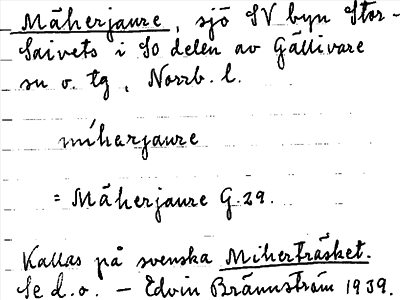 Mäherjaure, sjö SV byn Stor-
Saivets i SO delen av Gällivare
sn o. tg, Norrb. l.
miherjaure
= Mäherjaure G. 29.
Kallas på svenska Miherträsket.
Se d. o. – Edvin Brännström 1939.